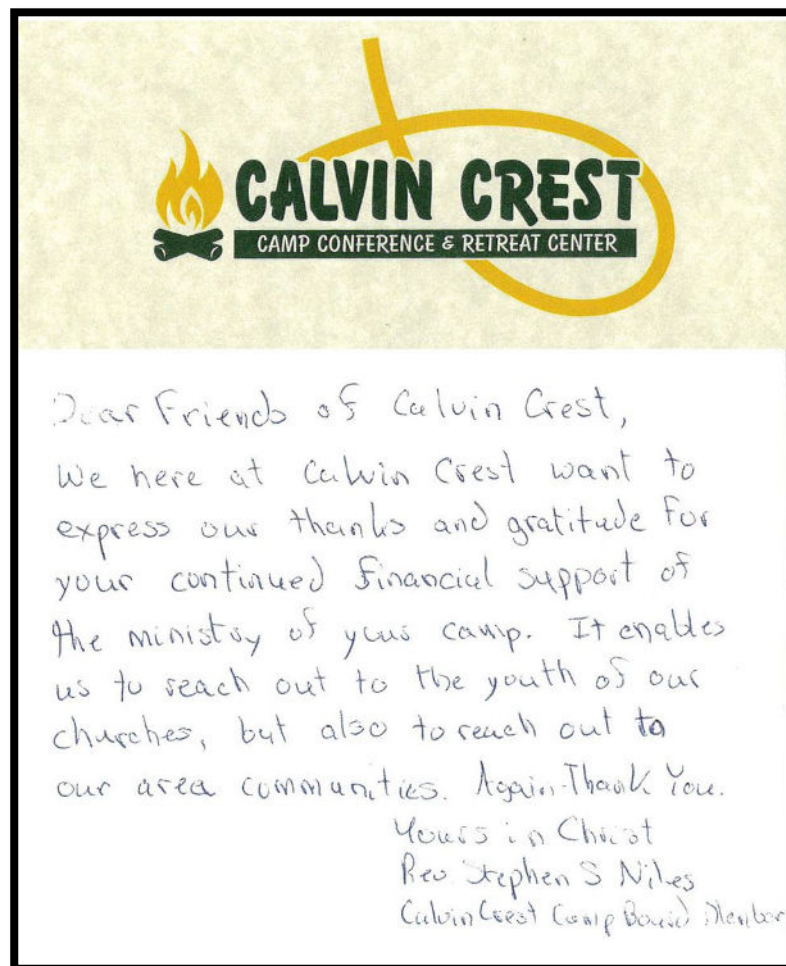 CALVIN CREST
CAMP CONFERENCE & RETREAT CENTER
Dear Friends of Calvin Crest,
We here at Calvin Crest want to
express our thanks and gratitude for
your continued financial support of
the ministry of your camp. It enables
us to reach out to the youth of our
churches, but also to reach out to
our area communities. Again-Thank You.
Yours in Christ
Rev. Stephen S Niles
Calvin Crest Camp Board Member